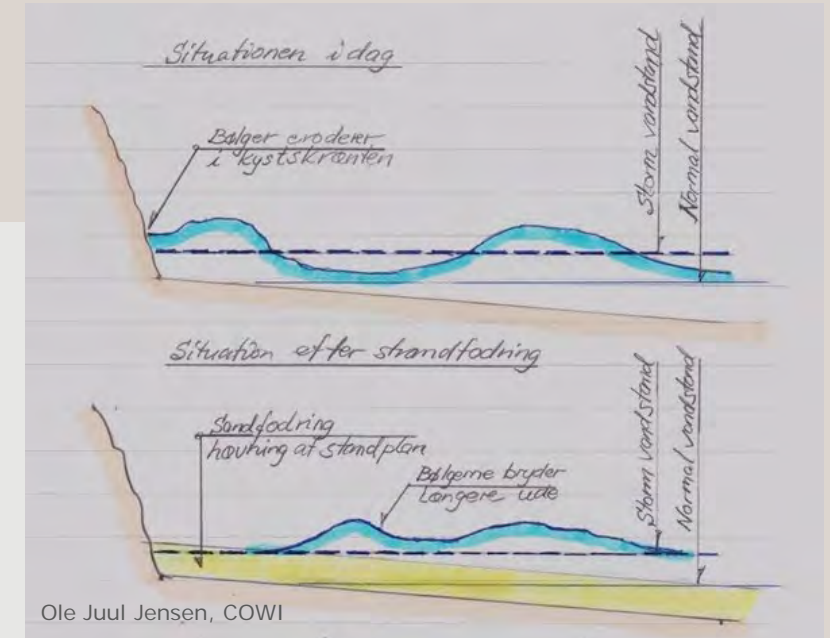 Situationen i dag
Bølger eroderer
i kystskrænten
Storm vandstand
Normal vandstand
Situation efter strandfodring
Sandfodring
hævning af standplan
Bølgerne bryder
længere ude
Storm vandstand
Normal vandstand
Ole Juul Jensen, COWI